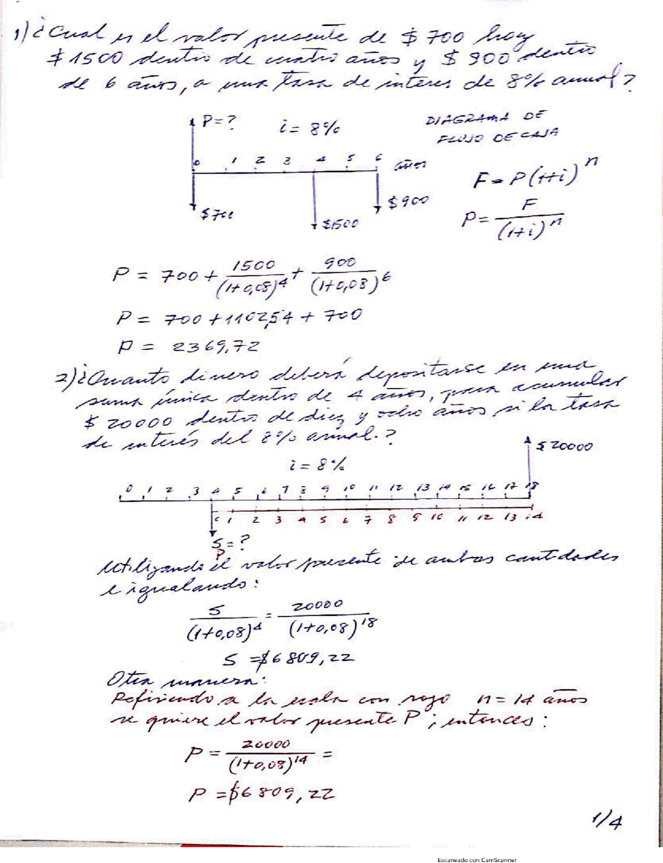 1) ¿Cual es el valor presente de $ 700 hoy
$ 1500 dentro de cuatro años y $ 900 dentro
de 6 años, a una tasa de interes de 8% anual?
P=? i= 8% DIAGRAMA DE
FLUJO DE CAJA
0 1 2 3 4 5 6 años
$700 $1500 $900
F=P(1+i)^n
P= F/(1+i)^n
P = 700 + 1500/(1+0,08)^4 + 900/(1+0,08)^6
P = 700 + 110254 + 700
P = 2369,72
2) ¿Cuanto dinero deberá depositarse en una
suma única dentro de 4 años, para acumular
$ 20000 dentro de diez y ocho años si la tasa
de interés del 8% anual.?
$ 20000
i = 8%
0 1 2 3 4 5 6 7 8 9 10 11 12 13 14 15 16 17 18
0 1 2 3 4 5 6 7 8 9 10 11 12 13 14
S = ?
P
Utilizando el valor presente de ambas cantidades
e igualando:
S/(1+0,08)^4 = 20000/(1+0,08)^18
S = $6809,22
Otra manera:
Refiriendo a la escala con rojo n = 14 años
se quiere el valor presente P; entonces:
P = 20000/(1+0,08)^14 =
P = $6809,22
1/4
Escaneado con CamScanner